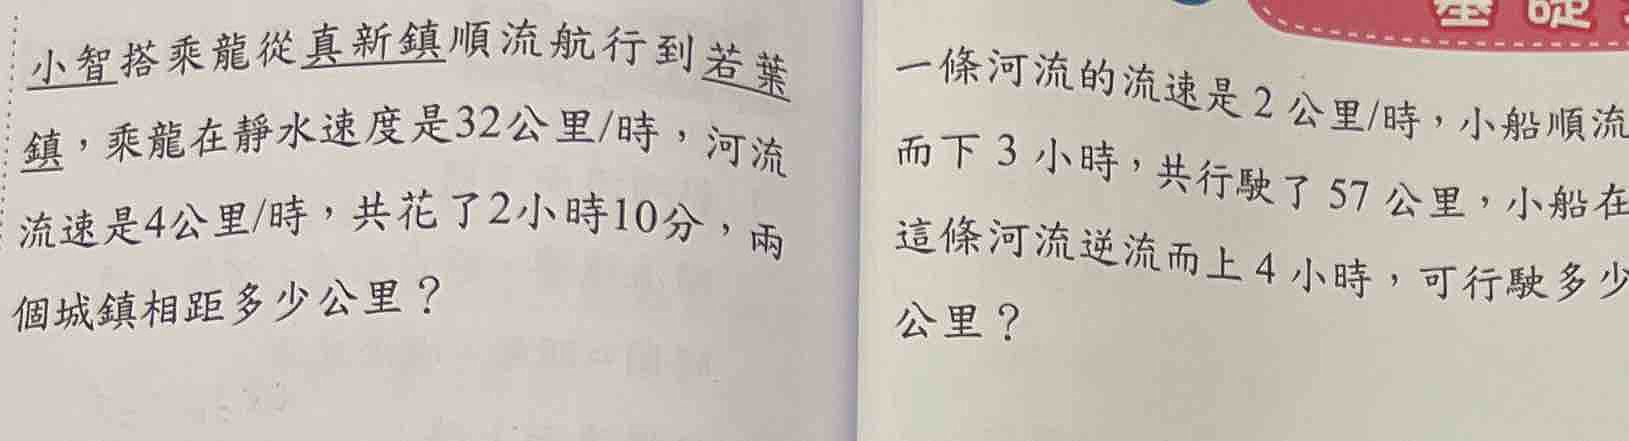 小智搭乘龍從真新鎮順流航行到若葉
鎮，乘龍在靜水速度是32公里/時，河流
流速是4公里/時，共花了2小時10分，兩
個城鎮相距多少公里？
基礎
一條河流的流速是2公里/時，小船順流
而下3小時，共行駛了57公里，小船在
這條河流逆流而上4小時，可行駛多少
公里？